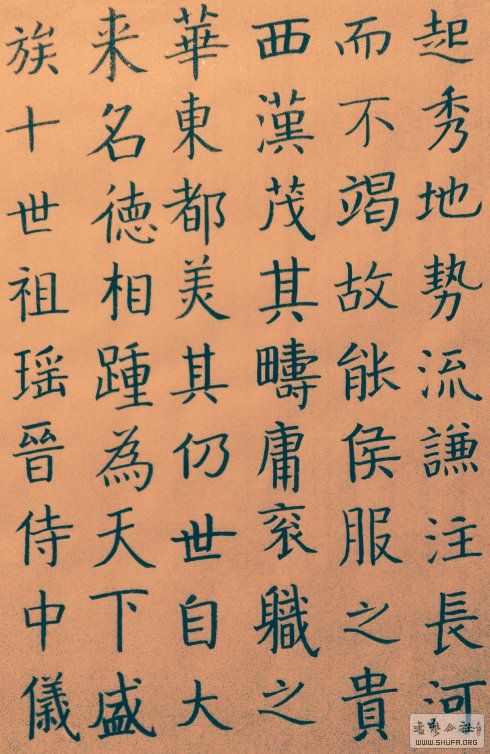 起秀地勢流謙注長河
而不竭故能侯服之貴
西漢茂其疇庸袞職之
華東都美其仍世自大
来名德相踵為天下盛
族十世祖瑶晉侍中儀
WWW.SHUFA.ORG